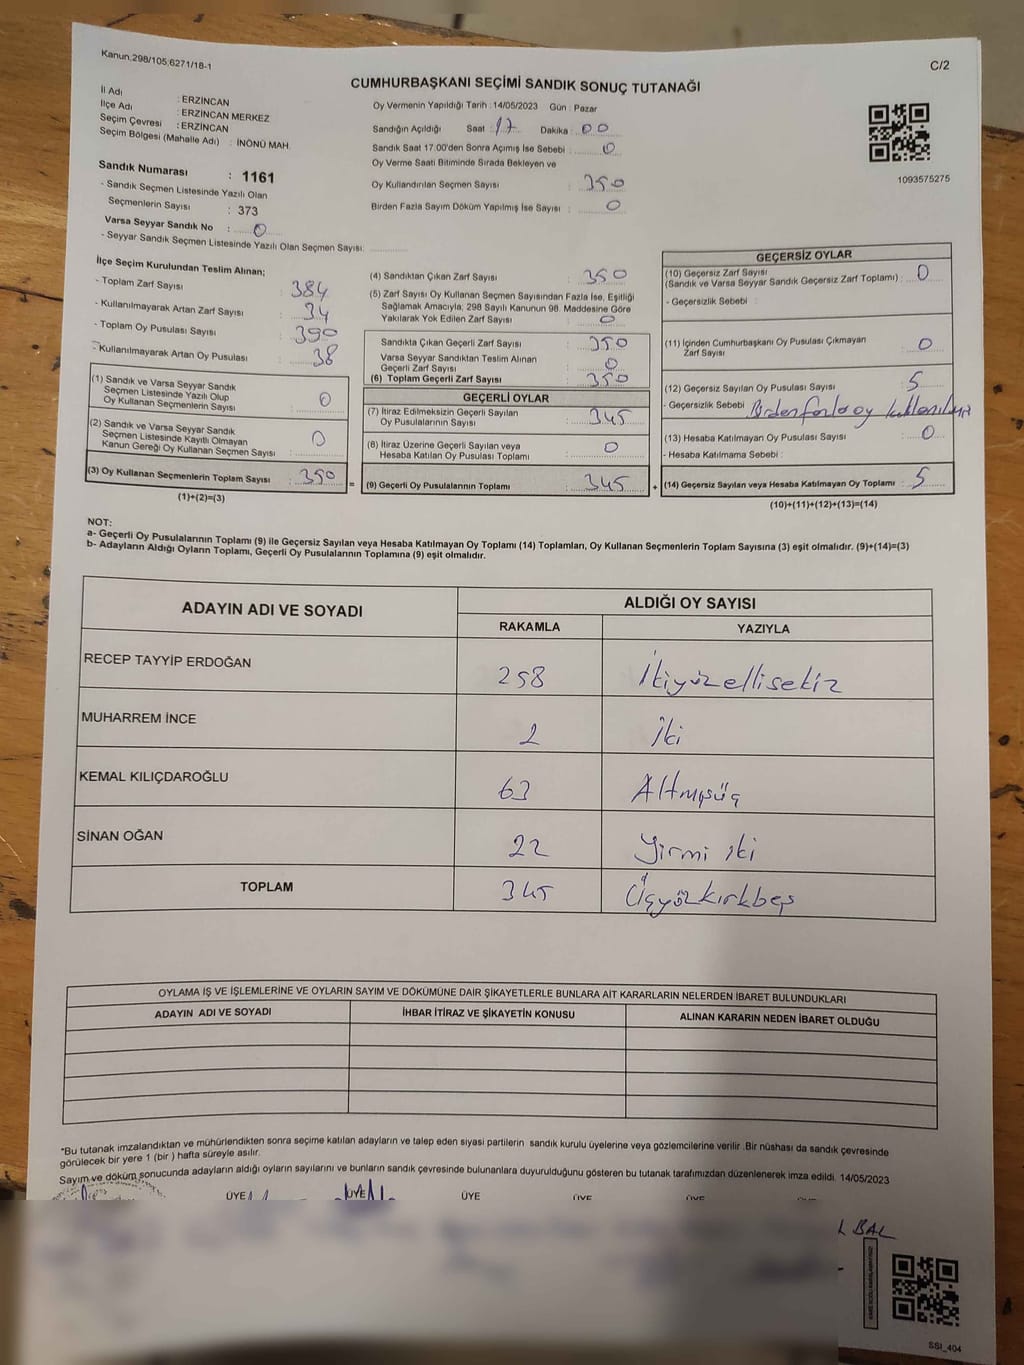 Kanun:298/105,6271/18-1
C/2
CUMHURBAŞKANI SEÇİMİ SANDIK SONUÇ TUTANAĞI
İl Adı : ERZİNCAN
İlçe Adı : ERZİNCAN MERKEZ
Seçim Çevresi : ERZİNCAN
Seçim Bölgesi (Mahalle Adı) : İNÖNÜ MAH.
Sandık Numarası : 1161
- Sandık Seçmen Listesinde Yazılı Olan
Seçmenlerin Sayısı : 373
Varsa Seyyar Sandık No : 0
- Seyyar Sandık Seçmen Listesinde Yazılı Olan Seçmen Sayısı:
Oy Vermenin Yapıldığı Tarih : 14/05/2023 Gün : Pazar
Sandığın Açıldığı Saat : 17 Dakika : 00
Sandık Saat 17.00'den Sonra Açımış İse Sebebi : 0
Oy Verme Saati Bitiminde Sırada Bekleyen ve
Oy Kullandırılan Seçmen Sayısı : 350
Birden Fazla Sayım Döküm Yapılmış İse Sayısı : 0
1093575275
İlçe Seçim Kurulundan Teslim Alınan;
- Toplam Zarf Sayısı : 384
- Kullanılmayarak Artan Zarf Sayısı : 34
- Toplam Oy Pusulası Sayısı : 390
- Kullanılmayarak Artan Oy Pusulası : 38
(1) Sandık ve Varsa Seyyar Sandık
Seçmen Listesinde Yazılı Olup
Oy Kullanan Seçmenlerin Sayısı : 0
(2) Sandık ve Varsa Seyyar Sandık
Seçmen Listesinde Kayıtlı Olmayan
Kanun Gereği Oy Kullanan Seçmen Sayısı : 0
(3) Oy Kullanan Seçmenlerin Toplam Sayısı : 350
(1)+(2)=(3)
(4) Sandıktan Çıkan Zarf Sayısı : 350
(5) Zarf Sayısı Oy Kullanan Seçmen Sayısından Fazla İse, Eşitliği
Sağlamak Amacıyla, 298 Sayılı Kanunun 98. Maddesine Göre
Yakılarak Yok Edilen Zarf Sayısı : 0
Sandıkta Çıkan Geçerli Zarf Sayısı : 350
Varsa Seyyar Sandıktan Teslim Alınan
Geçerli Zarf Sayısı : 0
(6) Toplam Geçerli Zarf Sayısı : 350
GEÇERLİ OYLAR
(7) İtiraz Edilmeksizin Geçerli Sayılan
Oy Pusulalarının Sayısı : 345
(8) İtiraz Üzerine Geçerli Sayılan veya
Hesaba Katılan Oy Pusulası Toplamı : 0
= (9) Geçerli Oy Pusulalarının Toplamı : 345 +
GEÇERSİZ OYLAR
(10) Geçersiz Zarf Sayısı
(Sandık ve Varsa Seyyar Sandık Geçersiz Zarf Toplamı) : 0
- Geçersizlik Sebebi :
(11) İçinden Cumhurbaşkanı Oy Pusulası Çıkmayan
Zarf Sayısı : 0
(12) Geçersiz Sayılan Oy Pusulası Sayısı : 5
- Geçersizlik Sebebi : Birden fazla oy
(13) Hesaba Katılmayan Oy Pusulası Sayısı : 0
- Hesaba Katılmama Sebebi :
(14) Geçersiz Sayılan veya Hesaba Katılmayan Oy Toplamı : 5
(10)+(11)+(12)+(13)=(14)
NOT:
a- Geçerli Oy Pusulalarının Toplamı (9) ile Geçersiz Sayılan veya Hesaba Katılmayan Oy Toplamı (14) Toplamları, Oy Kullanan Seçmenlerin Toplam Sayısına (3) eşit olmalıdır. (9)+(14)=(3)
b- Adayların Aldığı Oyların Toplamı, Geçerli Oy Pusulalarının Toplamına (9) eşit olmalıdır.
ADAYIN ADI VE SOYADI ALDIĞI OY SAYISI
RAKAMLA YAZIYLA
RECEP TAYYİP ERDOĞAN 258 İkiyüzellisekiz
MUHARREM İNCE 2 İki
KEMAL KILIÇDAROĞLU 63 Altmışüç
SİNAN OĞAN 22 Yirmi iki
TOPLAM 345 Üçyüzkırkbeş
OYLAMA İŞ VE İŞLEMLERİNE VE OYLARIN SAYIM VE DÖKÜMÜNE DAİR ŞİKAYETLERLE BUNLARA AİT KARARLARIN NELERDEN İBARET BULUNDUKLARI
ADAYIN ADI VE SOYADI İHBAR İTİRAZ VE ŞİKAYETİN KONUSU ALINAN KARARIN NEDEN İBARET OLDUĞU
*Bu tutanak imzalandıktan ve mühürlendikten sonra seçime katılan adayların ve talep eden siyasi partilerin sandık kurulu üyelerine veya gözlemcilerine verilir .Bir nüshası da sandık çevresinde
görülecek bir yere 1 (bir ) hafta süreyle asılır.
Sayım ve döküm sonucunda adayların aldığı oyların sayılarını ve bunların sandık çevresinde bulunanlara duyurulduğunu gösteren bu tutanak tarafımızdan düzenlenerek imza edildi. 14/05/2023
ÜYE ÜYE ÜYE ÜYE ÜYE ÜYE
BAL
SSİ_404